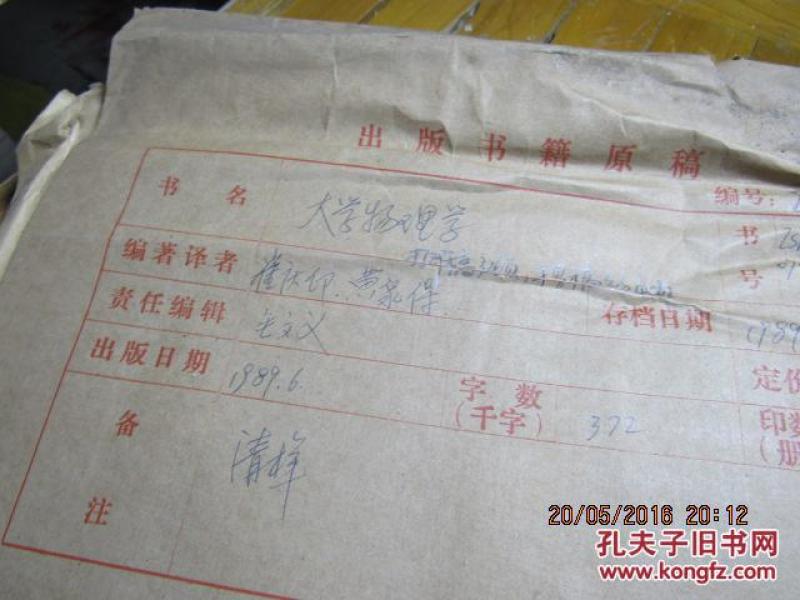 出版书籍原稿
编号：
书名 大学物理学 书号
编著译者 黄家保
责任编辑 存档日期 1989
出版日期 1989.6. 字数（千字） 372 定价
印数（册
备注 清样
20/05/2016 20:12
孔夫子旧书网
www.kongfz.com